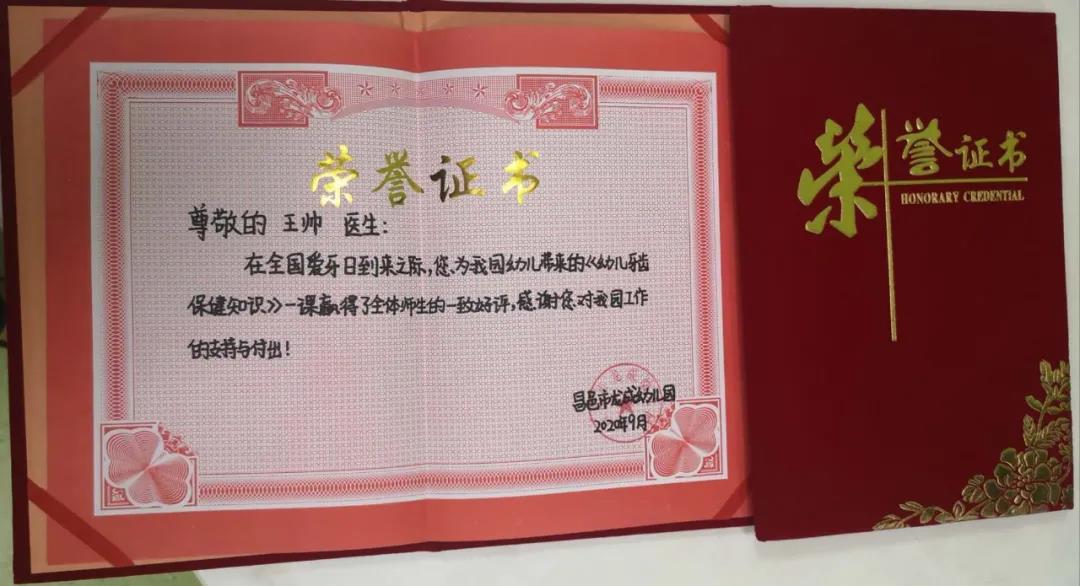 荣誉证书
尊敬的 王帅 医生：
在全国爱牙日到来之际，您为我园幼儿带来的《幼儿牙齿
保健知识》一课赢得了全体师生的一致好评，感谢您对我园工作
的支持与付出！
昌邑市龙成幼儿园
2020年9月
荣誉证书
HONORARY CREDENTIAL